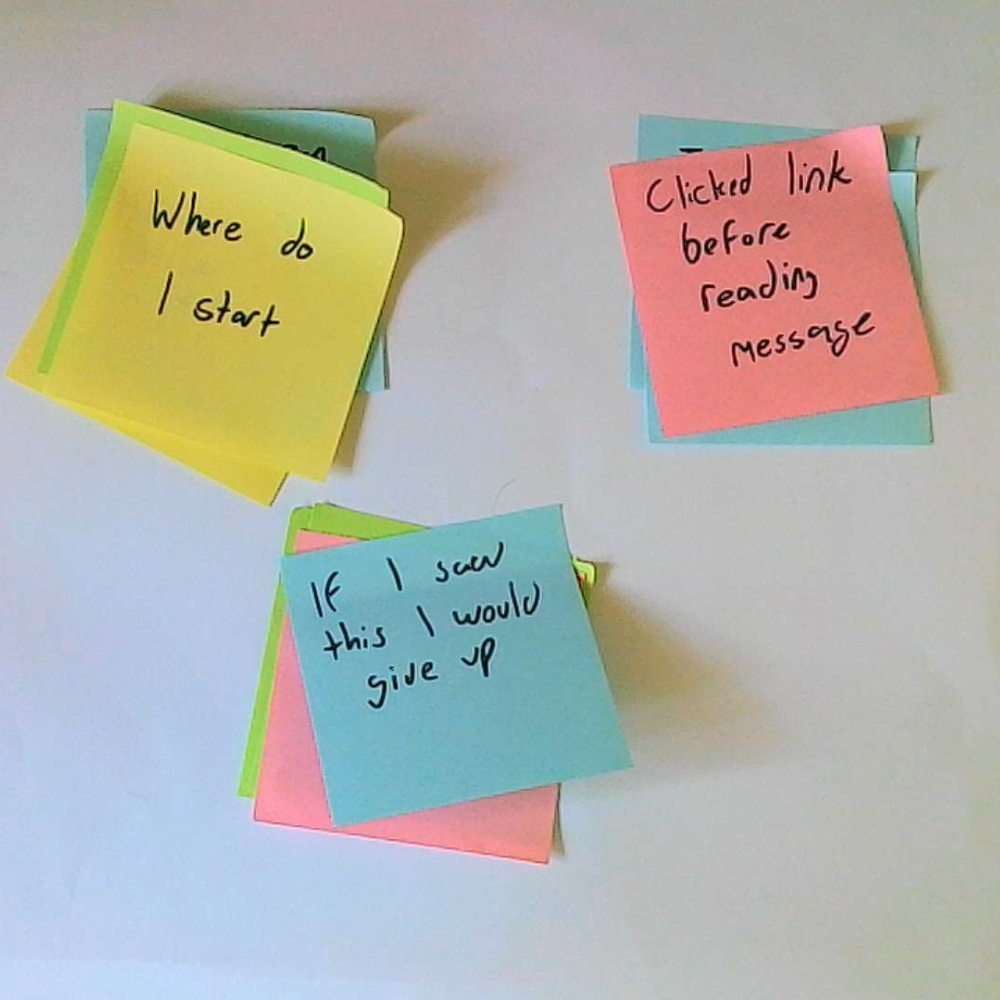 Where do
I start
Clicked link
before
reading
message
If I saw
this I would
give up